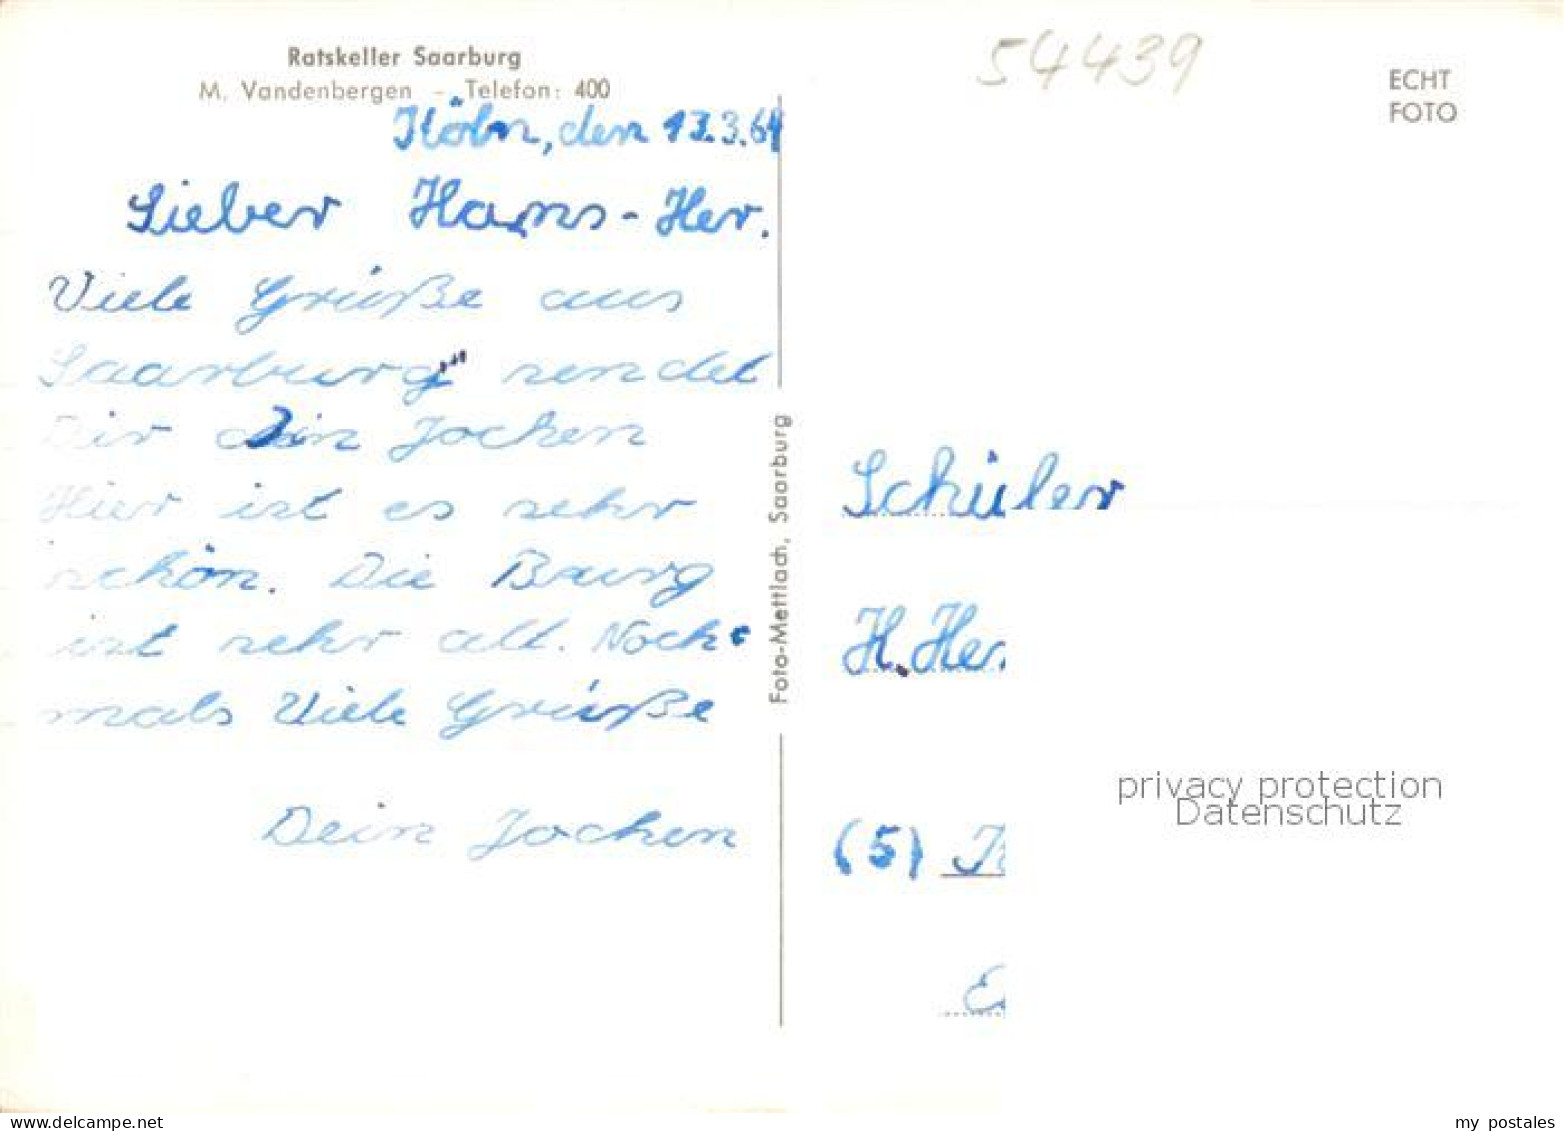 Ratskeller Saarburg
M. Vandenbergen - Telefon: 400
Köln, den 13.3.64
Lieber Hans-Her.
Viele Grüße aus
Saarburg" sendet
Dir Dein Jochen
Hier ist es sehr
schön. Die Burg
ist sehr alt. Noch-
mals Viele Grüße
Dein Jochen
Foto-Mettlach, Saarburg
54439
ECHT
FOTO
Schüler
H. Her.
(5)
privacy protection
Datenschutz
www.delcampe.net
my_postales